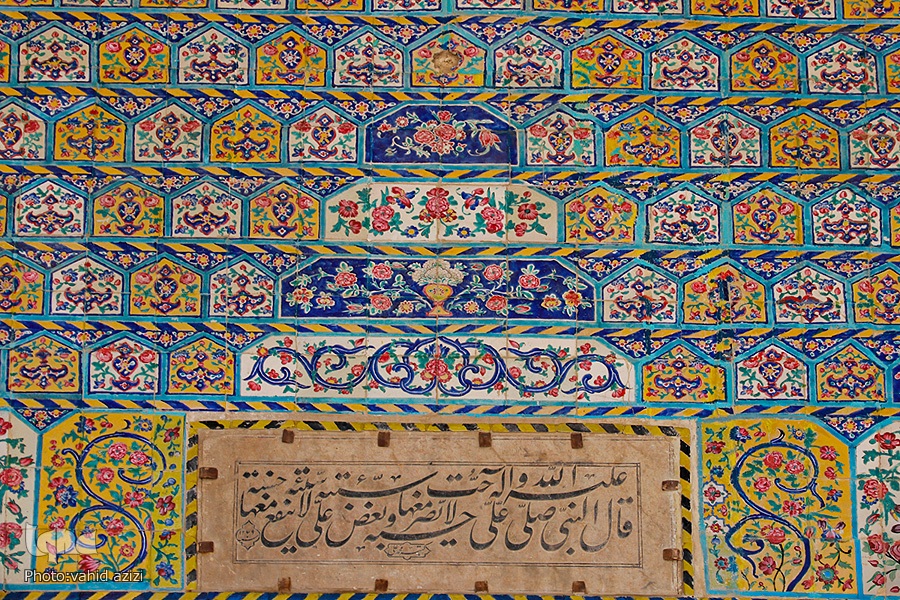 قال النبی صلی الله علیه و اله حب علی حسنة لا یضر معها سیئة و بغض علی سیئة لا ینفع معها حسنة
Photo:vahid azizi